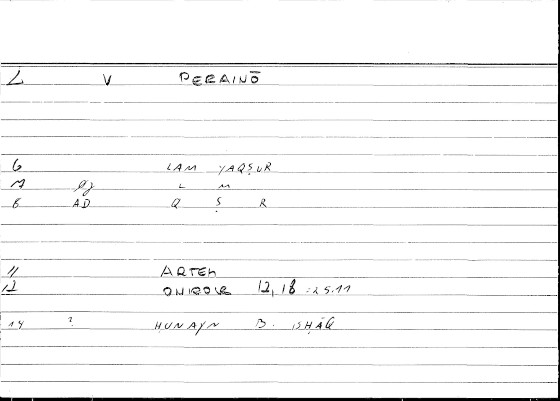 L V PERAINŌ
6 LAM YAQṢUR
7 aj L M
8 AD Q Ṣ R
11 ARTEM
12 ONIROCR 12,18 :25.11
14 ? HUNAYN B. ISHĀQ